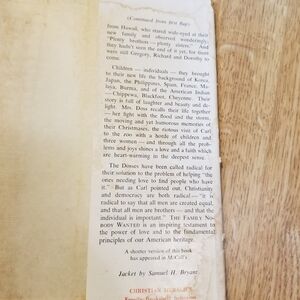 (Continued from first flap)
from Hawaii, who stared wide-eyed at their
new family and observed wonderingly,
"Plenty brothers — plenty sisters." And
they hadn't seen the end of it yet, for there
were still Gregory, Richard and Dorothy to
come.
Children — individuals — they brought
to their new life the background of Korea,
Japan, the Philippines, Spain, France, Ma-
laya, Burma, and of the American Indian
— Chippewa, Blackfoot, Cheyenne. Their
story is full of laughter and beauty and de-
light. Mrs. Doss recalls their life together
— her fight with the flood and the storm,
the moving and yet humorous memories of
their Christmases, the riotous visit of Carl
to the zoo with a horde of children and
three women — and through all the prob-
lems and joys shines a love and a faith which
are heart-warming in the deepest sense.
The Dosses have been called radical for
their solution to the problem of helping "the
ones needing love to find people who have
it." But as Carl pointed out, Christianity
and democracy are both radical—"it is
radical to say that all men are created equal,
and that all men are brothers — and that the
individual is important." THE FAMILY NO-
BODY WANTED is an inspiring testament to
the power of love and to the fundamental
principles of our American heritage.
A shorter version of this book
has appeared in McCall's.
Jacket by Samuel H. Bryant
CHRISTIAN HERALD'S
Family Bookshelf